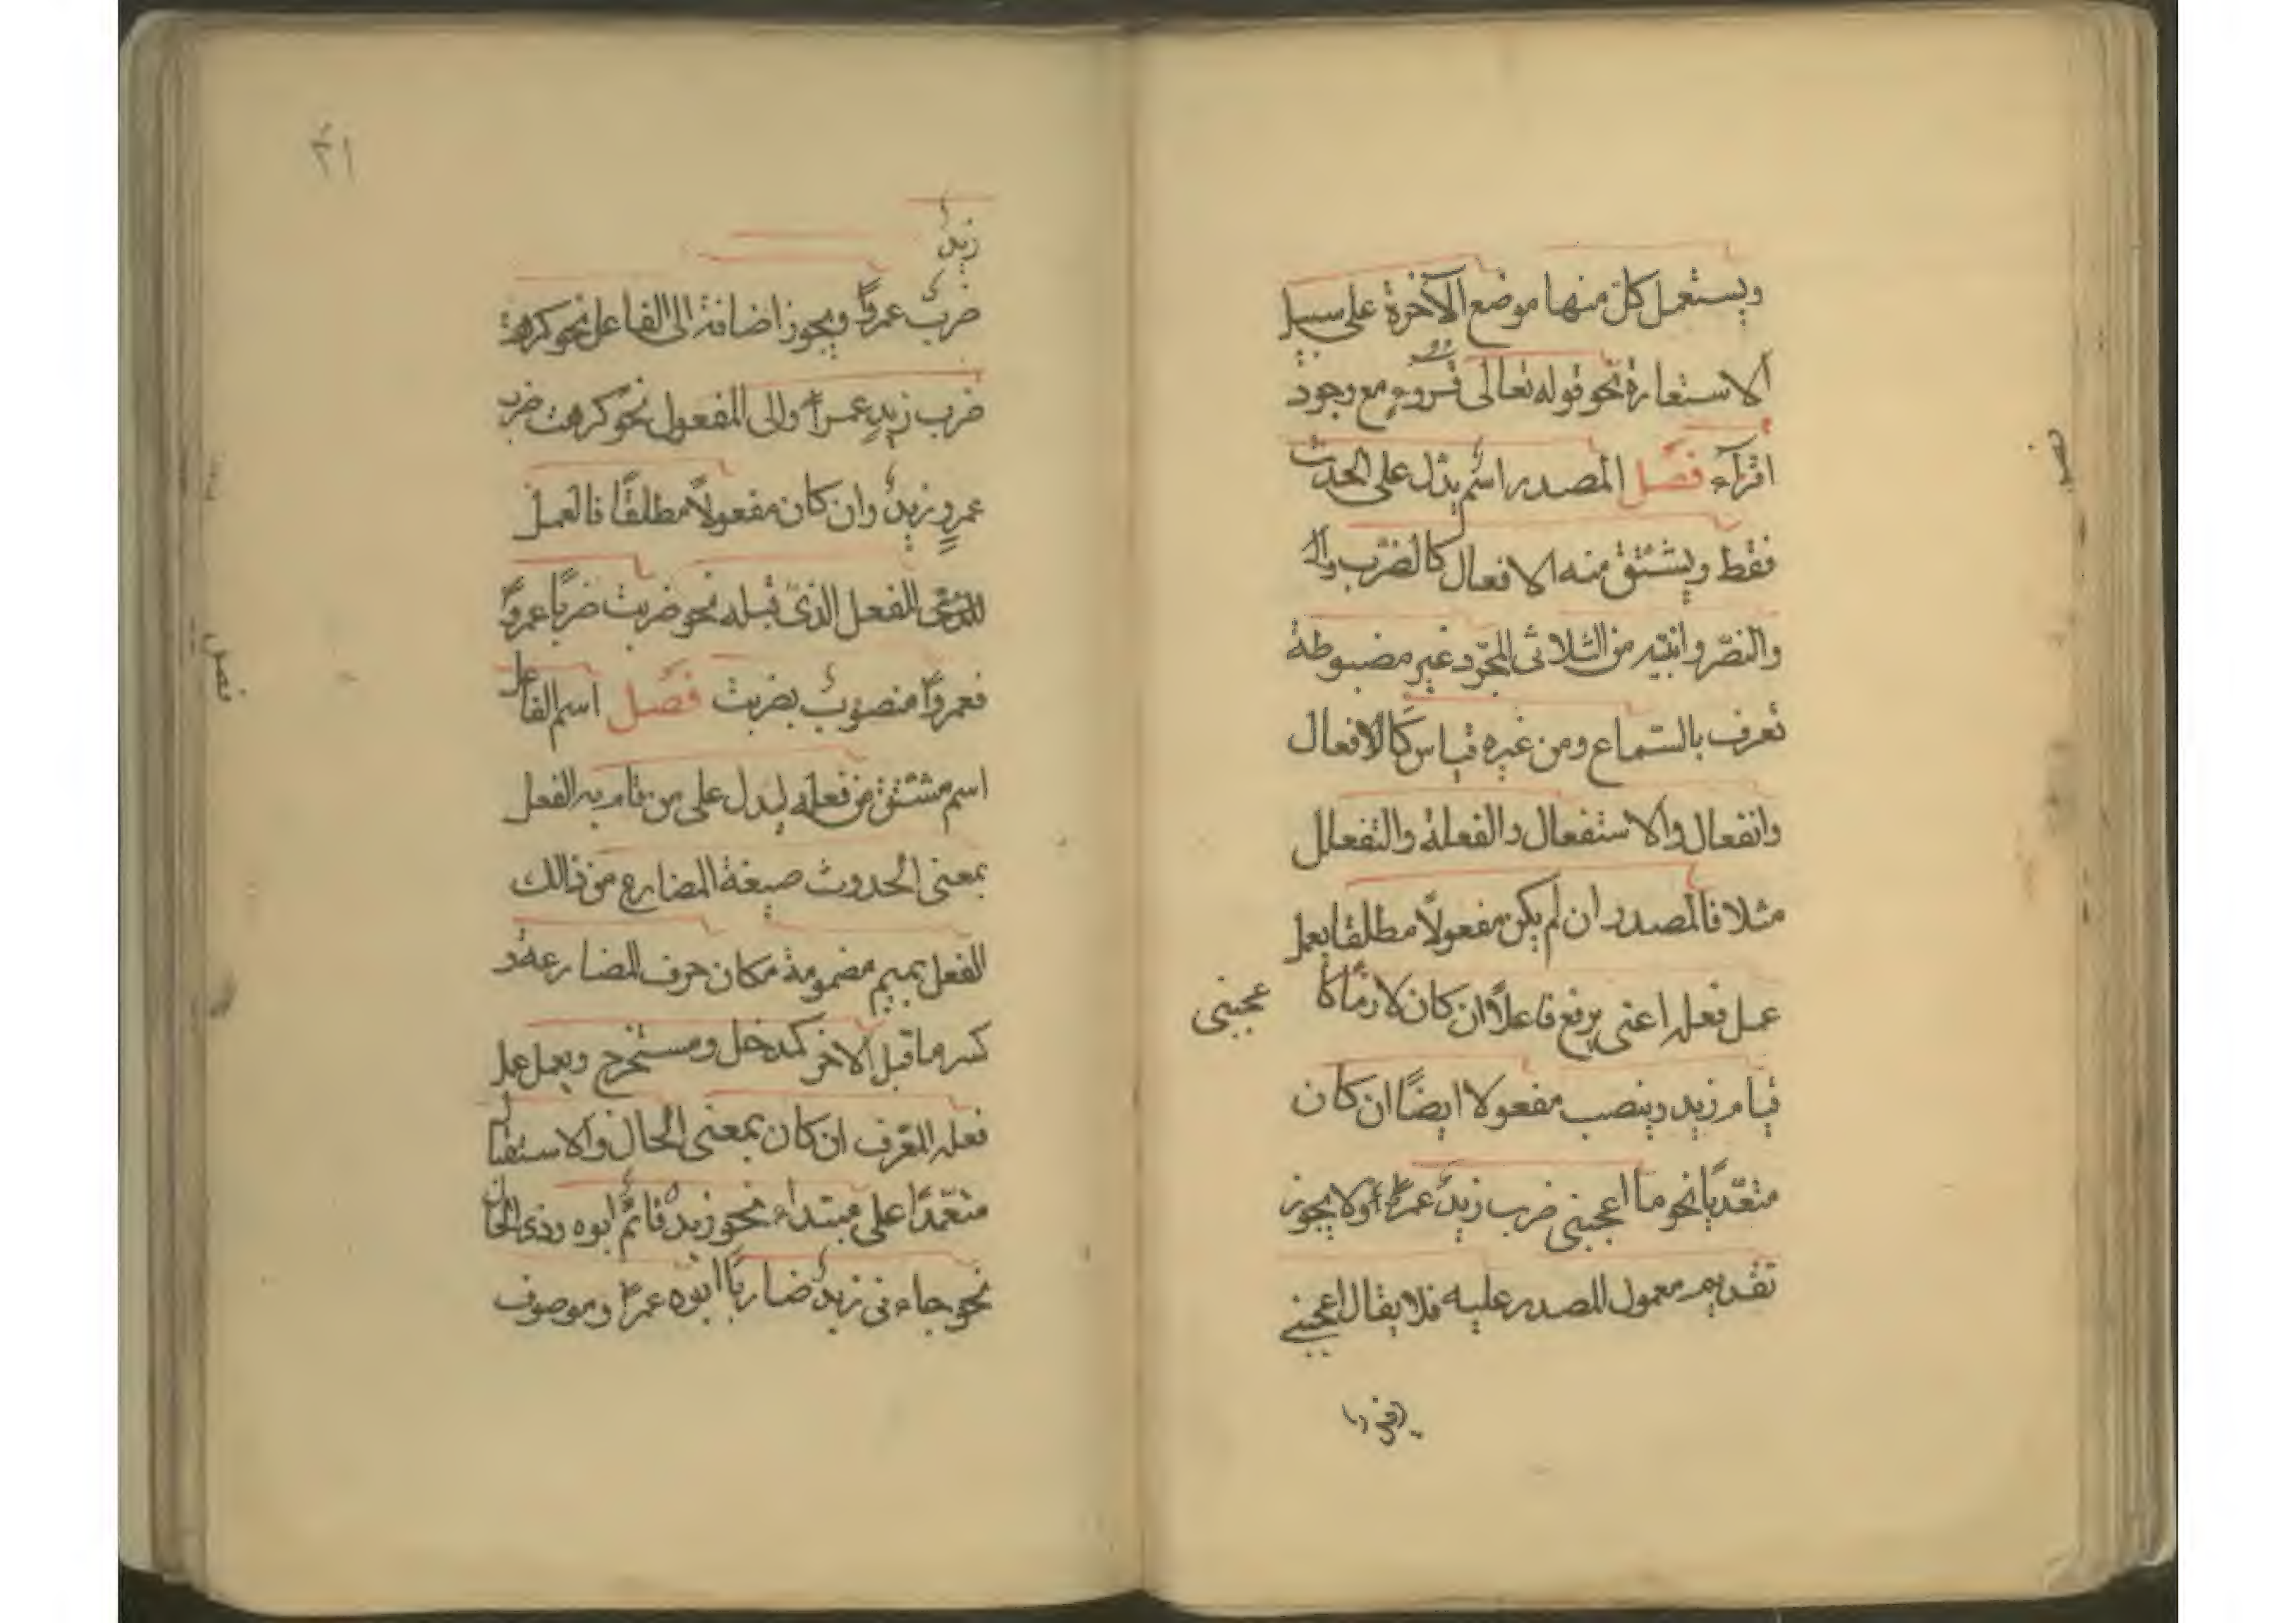 ويستعمل كلّ منها موضع الآخرة على سبيل
الاستعارة نحو قوله تعالى قروء مع وجود
اقراء فصل المصدر اسم يدل على الحدث
فقط ويشتق منه الافعال كالضرب
والنصر وابنيته من الثلاثى المجرّد غير مضبوطة
تعرف بالسّماع ومن غيره قياس كالافعال
وانفعال والاستفعال والفعلة والتفعلل
مثلا فالمصدر ان لم يكن مفعولاً مطلقا يعمل
عمل فعله اعنى يرفع فاعلاً ان كان لازماً كا عجبنى
قيام زيد وينصب مفعولا ايضًا ان كان
متعدّيًا نحو ما اعجبنى ضرب زيدٌ عمراً ولا يجوز
تقديم معمول المصدر عليه فلا يقال اعجبنى
٣١
زيدٌ
ضربٌ عمرواً ويجوز اضافة الى الفاعل نحو كرهت
ضرب زيدٍ عمراً والى المفعول نحو كرهت ضرب
عمرٍو زيدٌ وان كان مفعولاً مطلقًا فالعمل
الفعل الذى قبله نحو ضربت ضربًا عمرواً
فعمرواً منصوبٌ بضربت فصل اسم الفاعل
اسم مشتق من فعله ليدل على من قام به الفعل
بمعنى الحدوث صيغة المضارع من ذالك
الفعل بميم مضمومة مكان حرف المضارعة و
كسر ما قبل الاخر كمدخل ومستخرج ويعمل عمل
فعله المعرف ان كان بمعنى الحال والاستقبال
متعّمدًا على مبتداء نحو زيدٌ قائمٌ ابوه وذى الحال
نحو جاءنى زيدٌ ضاربًا ابوه عمراً وموصوف